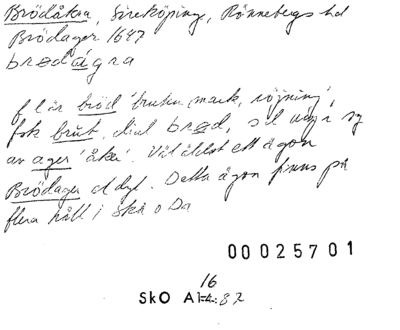 Brödåkra, Sireköpinge, Rönnebergs hd
Brödager 1647
brødágra
f l är bröd 'bruten mark, röjning',
fsk brut, dial brød, o
av ager 'åker'. ett ägon
Brödager el dyl. Detta ägon finns på
flera håll i Skå o Da
00025701
16
SkO A 37